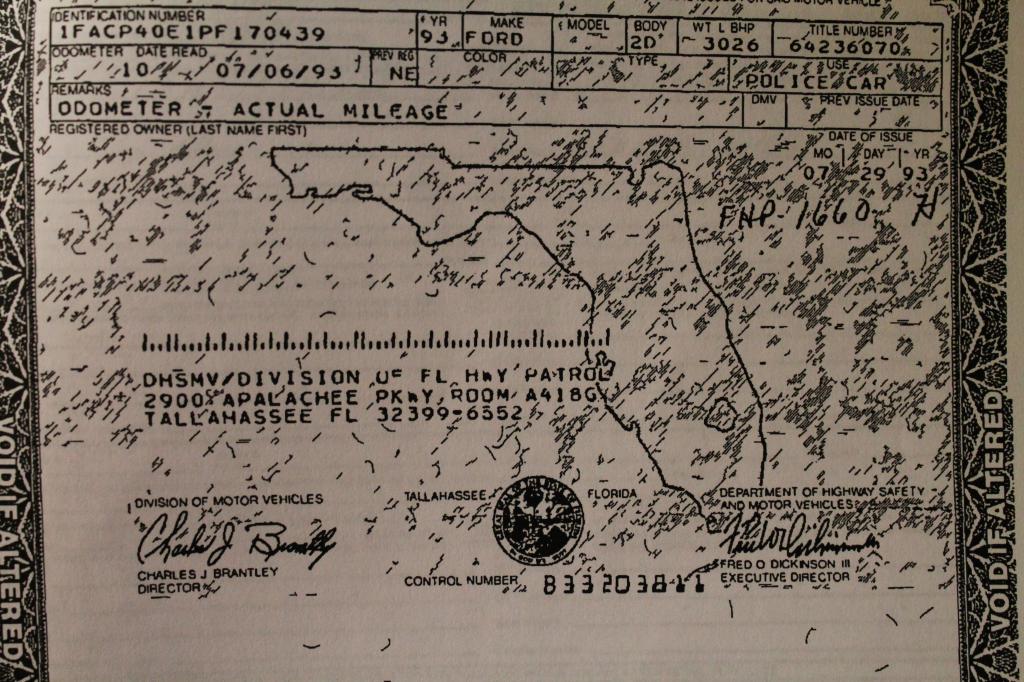 IDENTIFICATION NUMBER YR MAKE MODEL BODY WT L BHP TITLE NUMBER
1FACP40E1PF170439 93 FORD 2D 3026 64236070
ODOMETER DATE READ PREV REG COLOR TYPE USE
10 07/06/93 NE POLICE CAR
REMARKS DMV PREV ISSUE DATE
ODOMETER - ACTUAL MILEAGE
REGISTERED OWNER (LAST NAME FIRST) DATE OF ISSUE
MO DAY YR
07 29 93
FHP-1660 H
DHSMV/DIVISION OF FL HWY PATROL
2900 APALACHEE PKWY, ROOM A418G
TALLAHASSEE FL 32399-6552
DIVISION OF MOTOR VEHICLES TALLAHASSEE FLORIDA DEPARTMENT OF HIGHWAY SAFETY
AND MOTOR VEHICLES
Charles J Brantley
CHARLES J BRANTLEY
DIRECTOR
CONTROL NUMBER 833203811
FRED O DICKINSON III
EXECUTIVE DIRECTOR
VOID IF ALTERED
VOID IF ALTERED